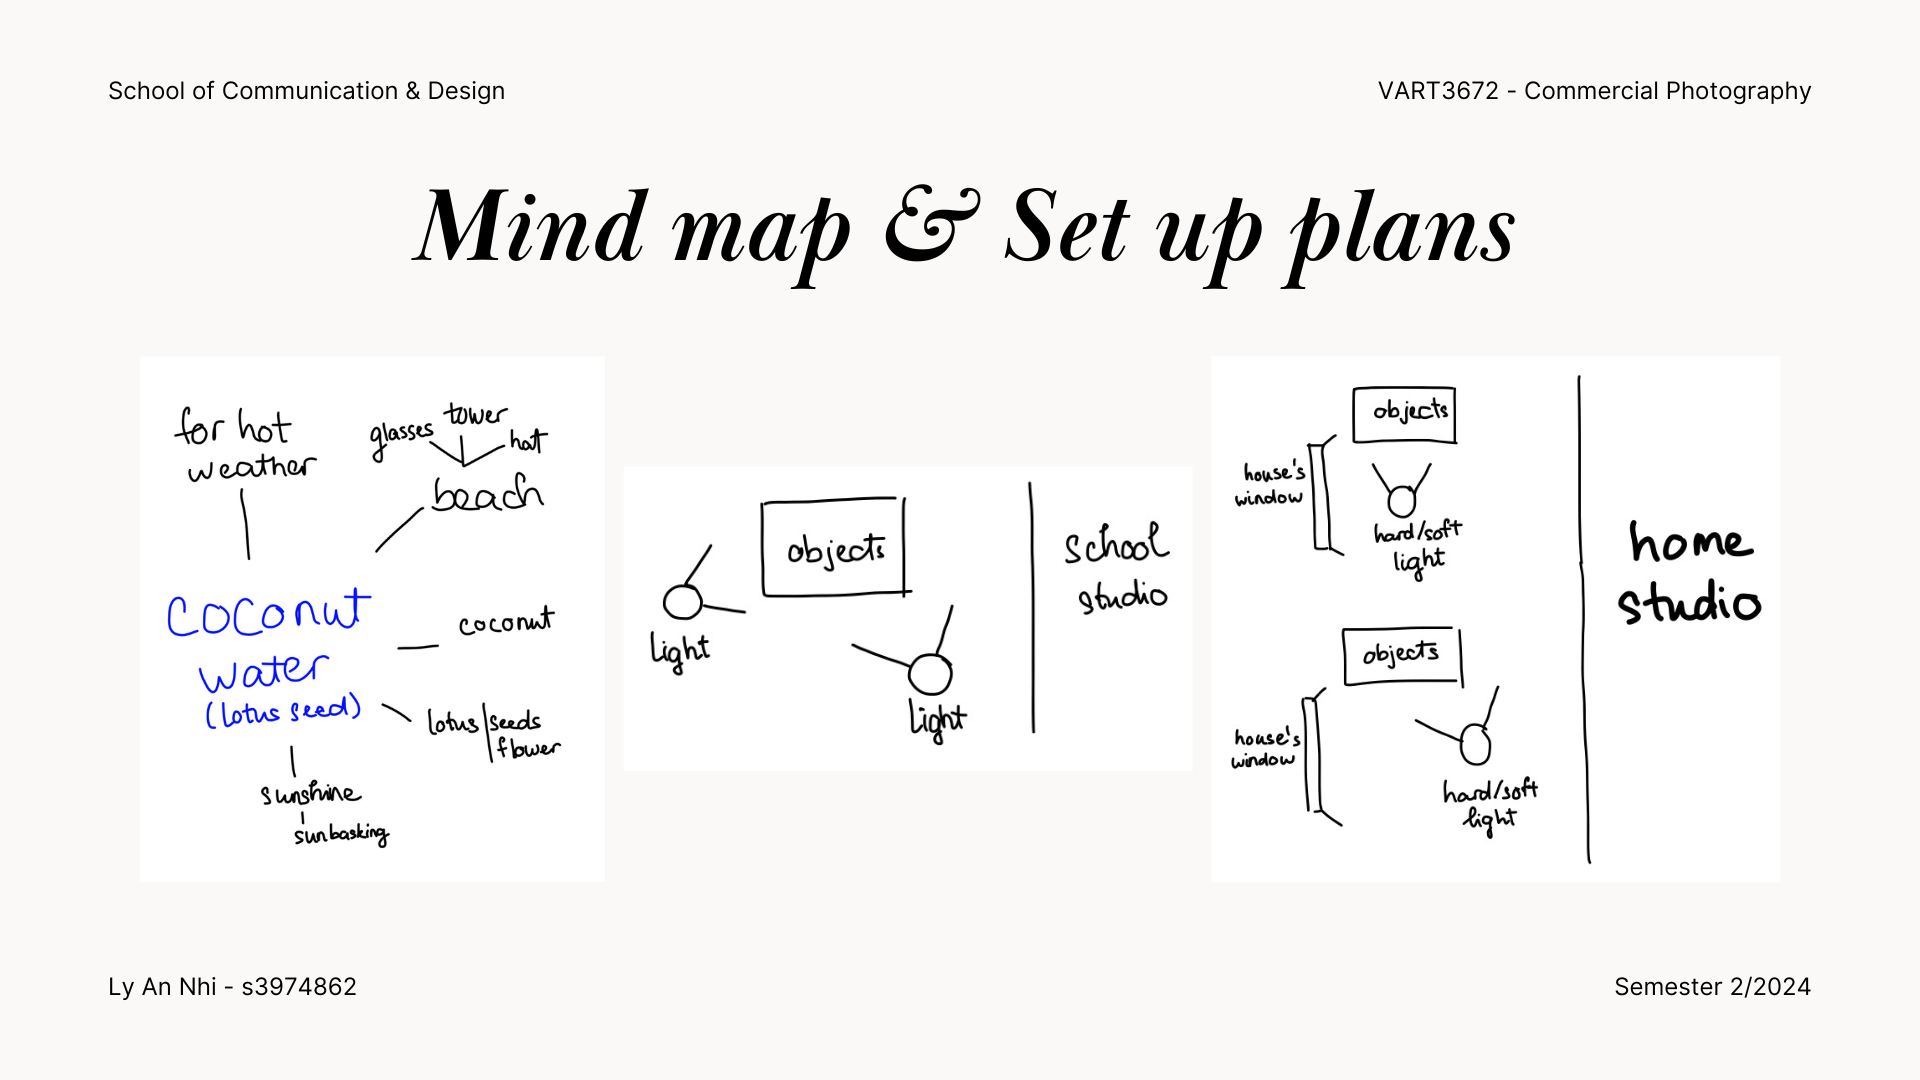 School of Communication & Design
VART3672 - Commercial Photography
Mind map & Set up plans
for hot
weather
glasses
tower
hat
beach
coconut
water
(lotus seed)
coconut
lotus
seeds
flower
sunshine
sunbasking
objects
Light
Light
school
studio
objects
house's
window
hard/soft
light
objects
house's
window
hard/soft
light
home
studio
Ly An Nhi - s3974862
Semester 2/2024